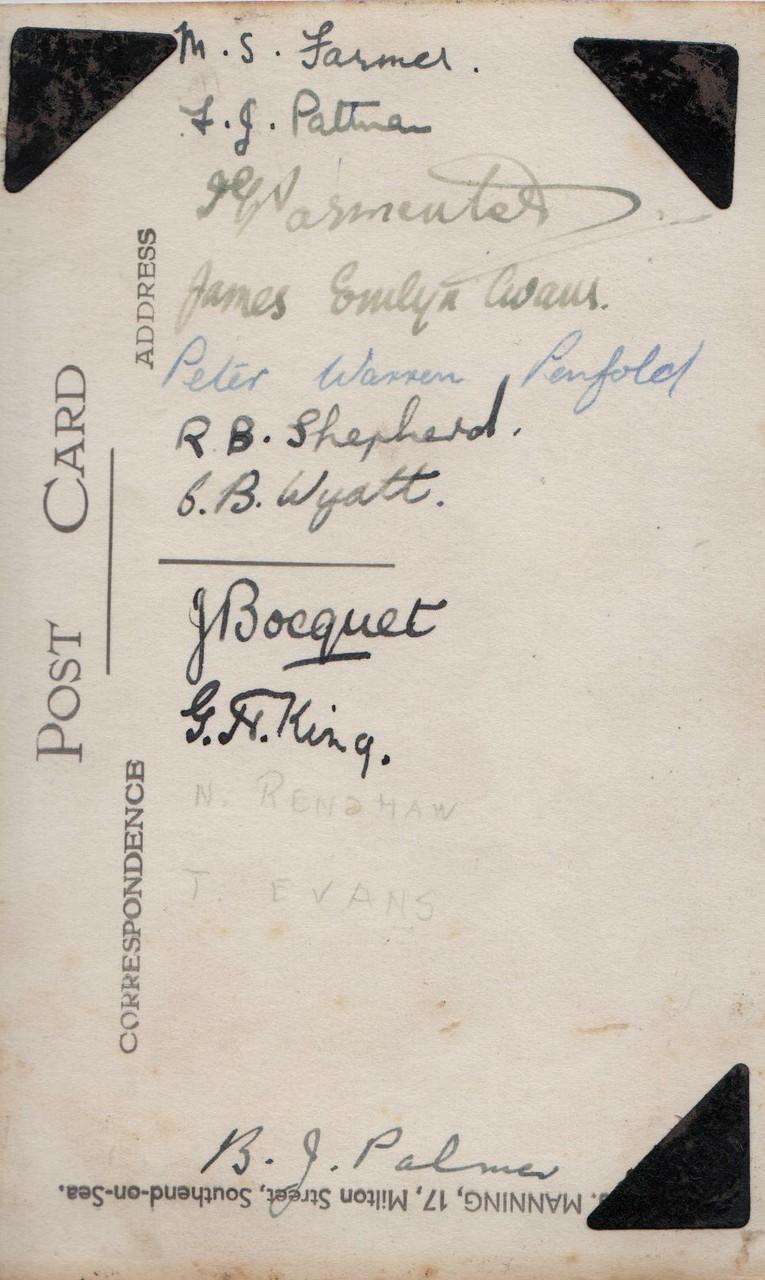 M. S. Farmer.
F. J. Pattman
Parmenter
James Emlyn Evans.
Peter Warren Penfold
R B. Shepherd.
B. Wyatt.
J Bocquet
G. H. King.
N. RENSHAW
T. EVANS
B. J. Palmer
POST CARD
ADDRESS
CORRESPONDENCE
MANNING, 17, Milton Street, Southend-on-Sea.